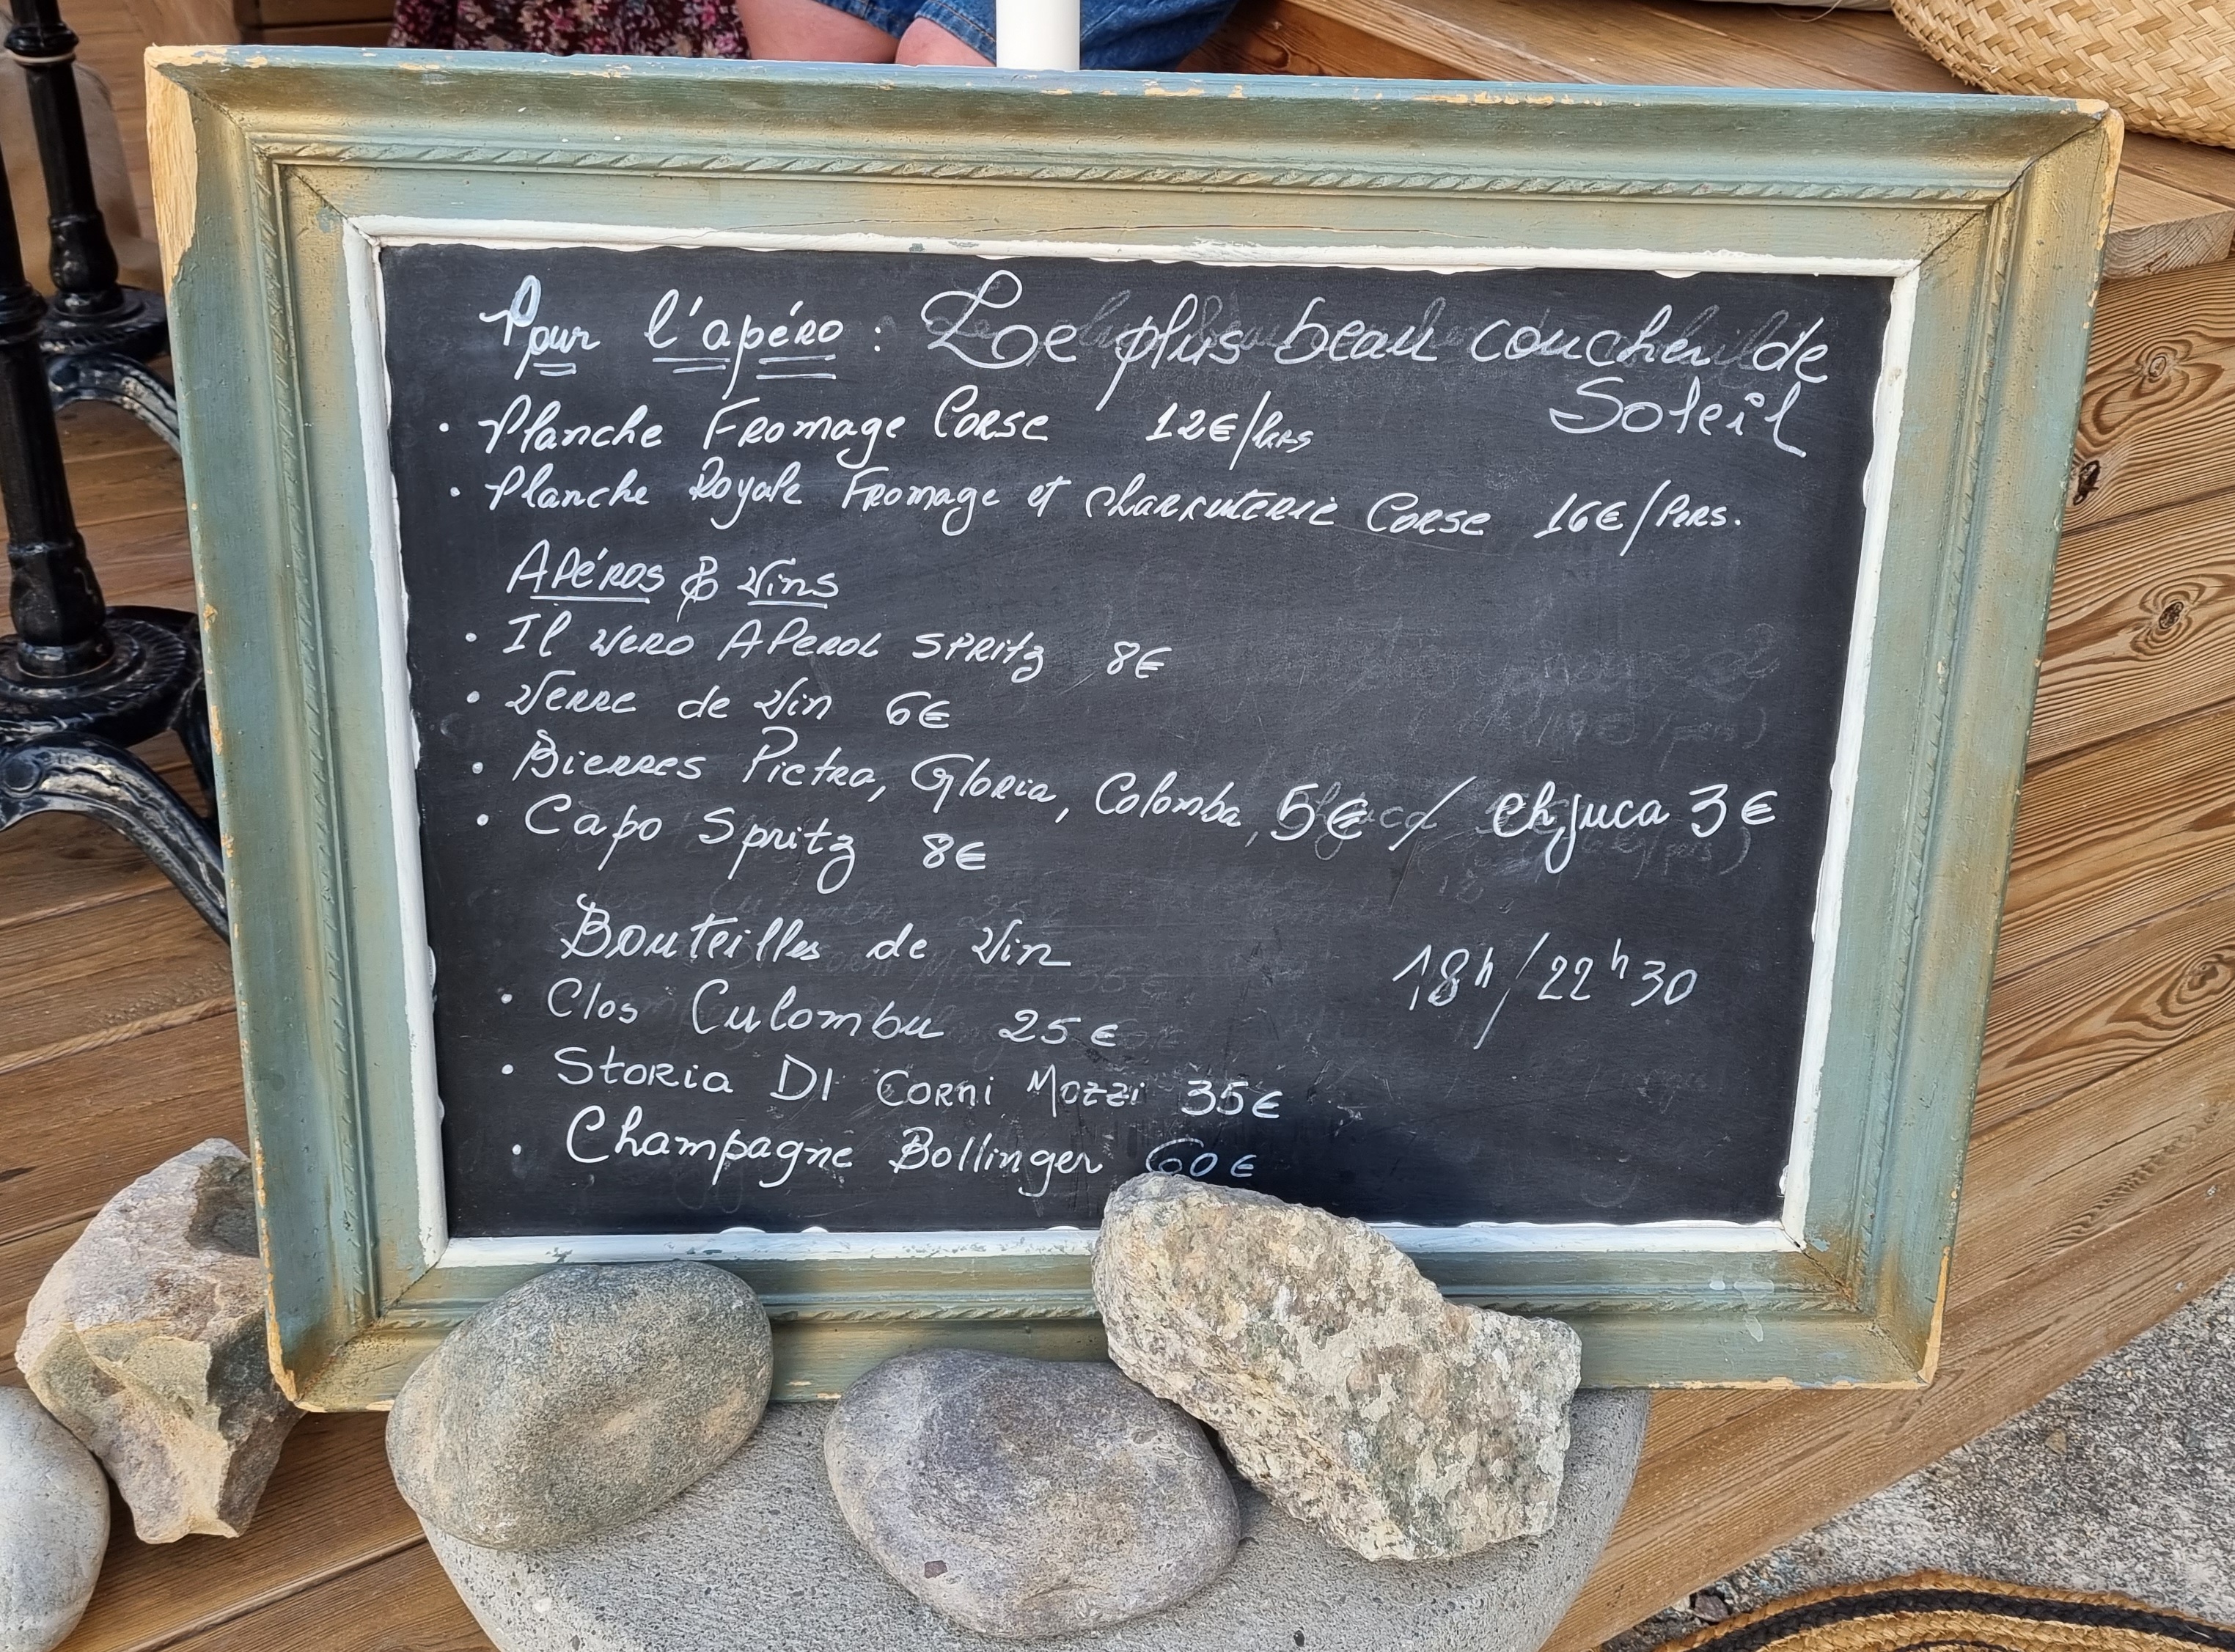 Pour l'apéro : Le plus beau coucher de
Soleil
• Planche Fromage Corse 12€/pers
• Planche Royale Fromage et charcuterie Corse 16€/Pers.
Apéros & Vins
• Il vero Aperol Spritz 8€
• Verre de Vin 6€
• Bierres Pietra, Gloria, Colomba, 5€ / Chjuca 3€
• Capo Spritz 8€
Bouteilles de Vin
18h/22h30
• Clos Culombu 25€
• Storia DI Corni Mozzi 35€
• Champagne Bollinger 60€